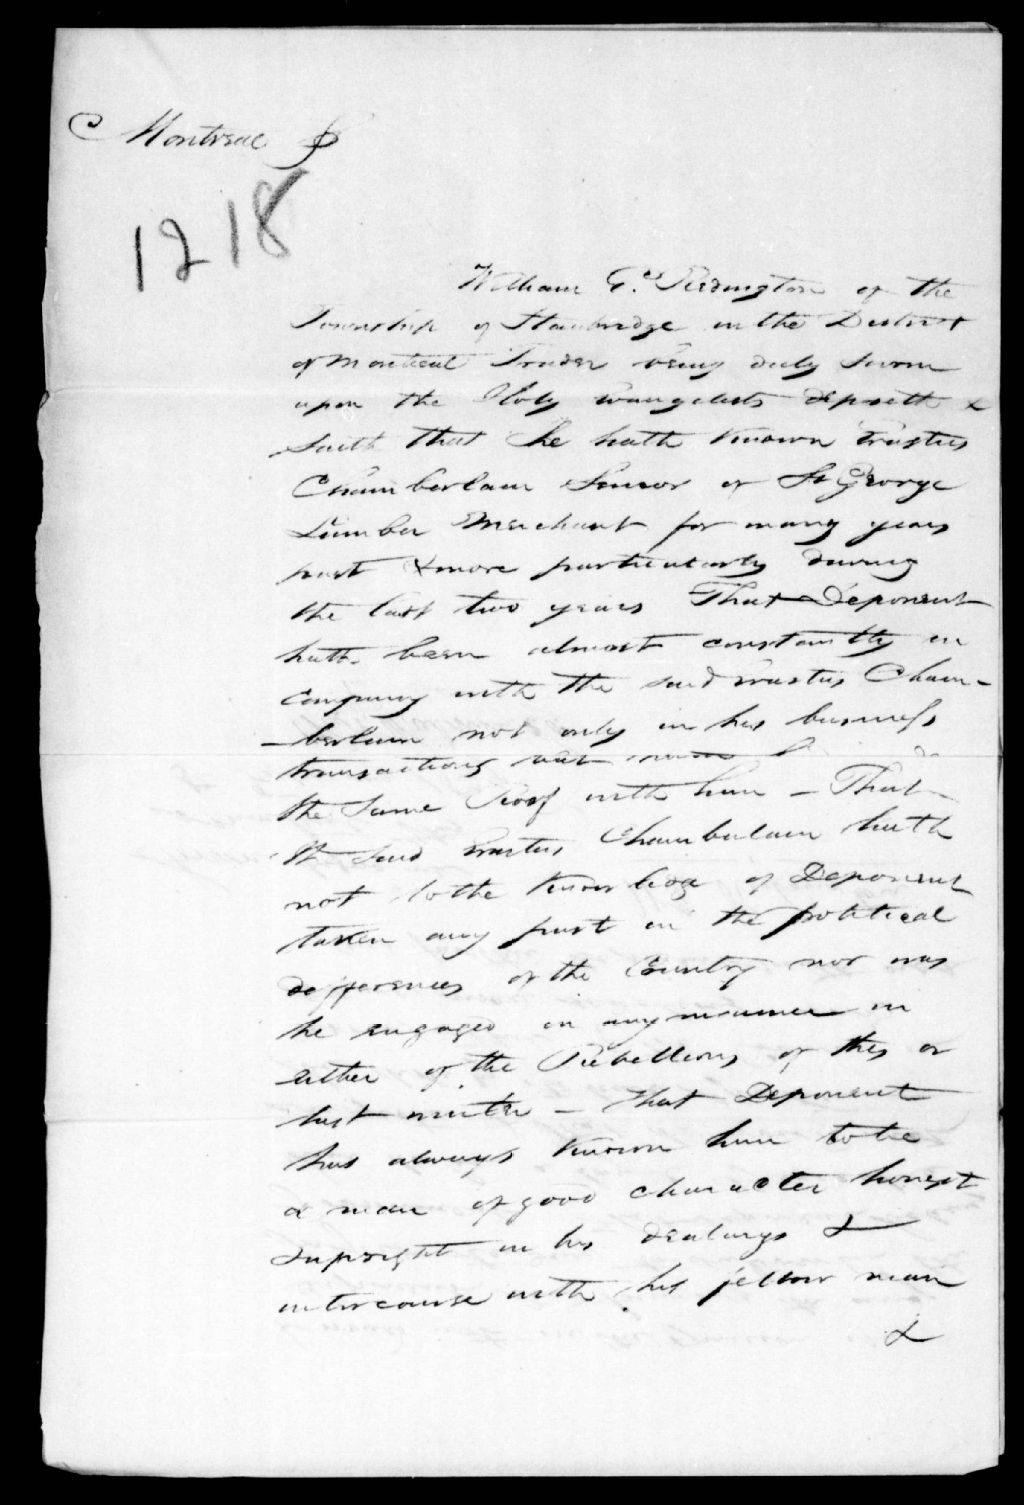 Montreal
1218
William G. Redington of the
Township of Stanbridge in the District
of Montreal Trader being duly sworn
upon the Holy Evangelists deposeth &
saith that he hath Known Erastus
Chamberlain Senior of St George
Lumber Merchant for many years
past & more particularly during
the last two years That Deponent
hath been almost constantly in
company with the said Erastus Cham-
berlain not only in his business
transactions but
the same Roof with him – That
the said Erastus Chamberlain hath
not to the Knowledge of Deponent
taken any part in the political
differences of the Country nor was
he engaged in any manner in
either of the Rebellions of this or
last winter – that Deponent
has always Known him to be
a man of good character honest
& upright in his dealings &
intercourse with his fellow man
&